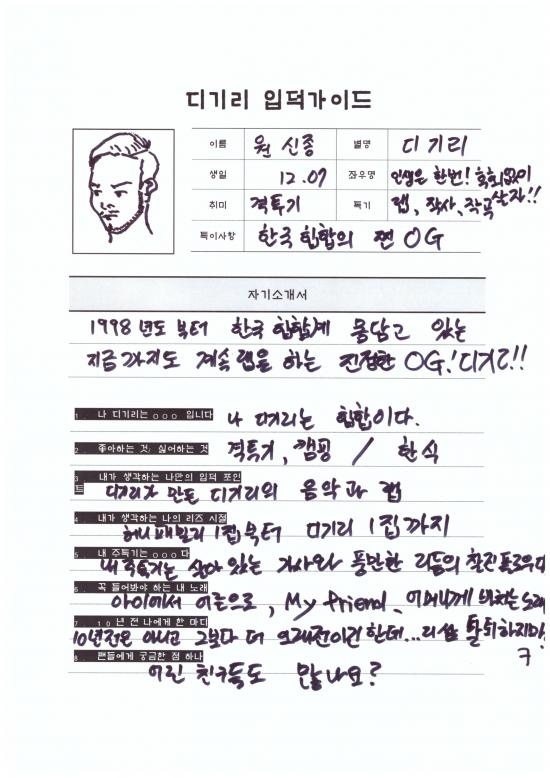 디기리 입덕가이드
이름 원 신종 별명 디기리
생일 12.07 좌우명 인생은 한번! 후회없이 살자!!
취미 격투기 특기 랩, 작사, 작곡
특이사항 한국 힙합의 찐 OG
자기소개서
1998년도 부터 한국 힙합계 몸담고 있는
지금 까지도 계속 랩을 하는 진정한 OG! 디기리!!
1. 나 디기리는 ㅇㅇㅇ 입니다 나 디기리는 힙합이다.
2. 좋아하는 것/ 싫어하는 것 격투기, 캠핑 / 한식
3. 내가 생각하는 나만의 입덕 포인트
디기리가 만든 디기리의 음악과 랩
4. 내가 생각하는 나의 리즈 시절
허니패밀리 1집부터 디기리 1집까지
5. 내 주특기는 ㅇㅇㅇ다
내 주특기는 살아 있는 가사와 풍만한 리듬의
6. 꼭 들어봐야 하는 내 노래
아이에서 어른으로, My friend, 어머니께 바치는 노래
7. 10년 전 나에게 한 마디
10년전은 아니고 그보다 더 오래전이긴 한데... 리쌈 탈퇴하지마!
8. 팬들에게 궁금한 점 하나
어린 친구들도 많나요?